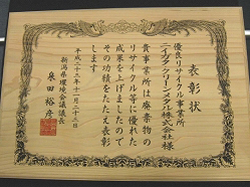 表彰状
優良リサイクル事業所
ニイガタクリーンメタル株式会社様
貴事業所は廃棄物の
リサイクル等に優れた
成果を上げましたので
その功績をたたえ表彰
します
平成二十三年十一月二十三日
新潟県環境会議議長
泉田裕彦